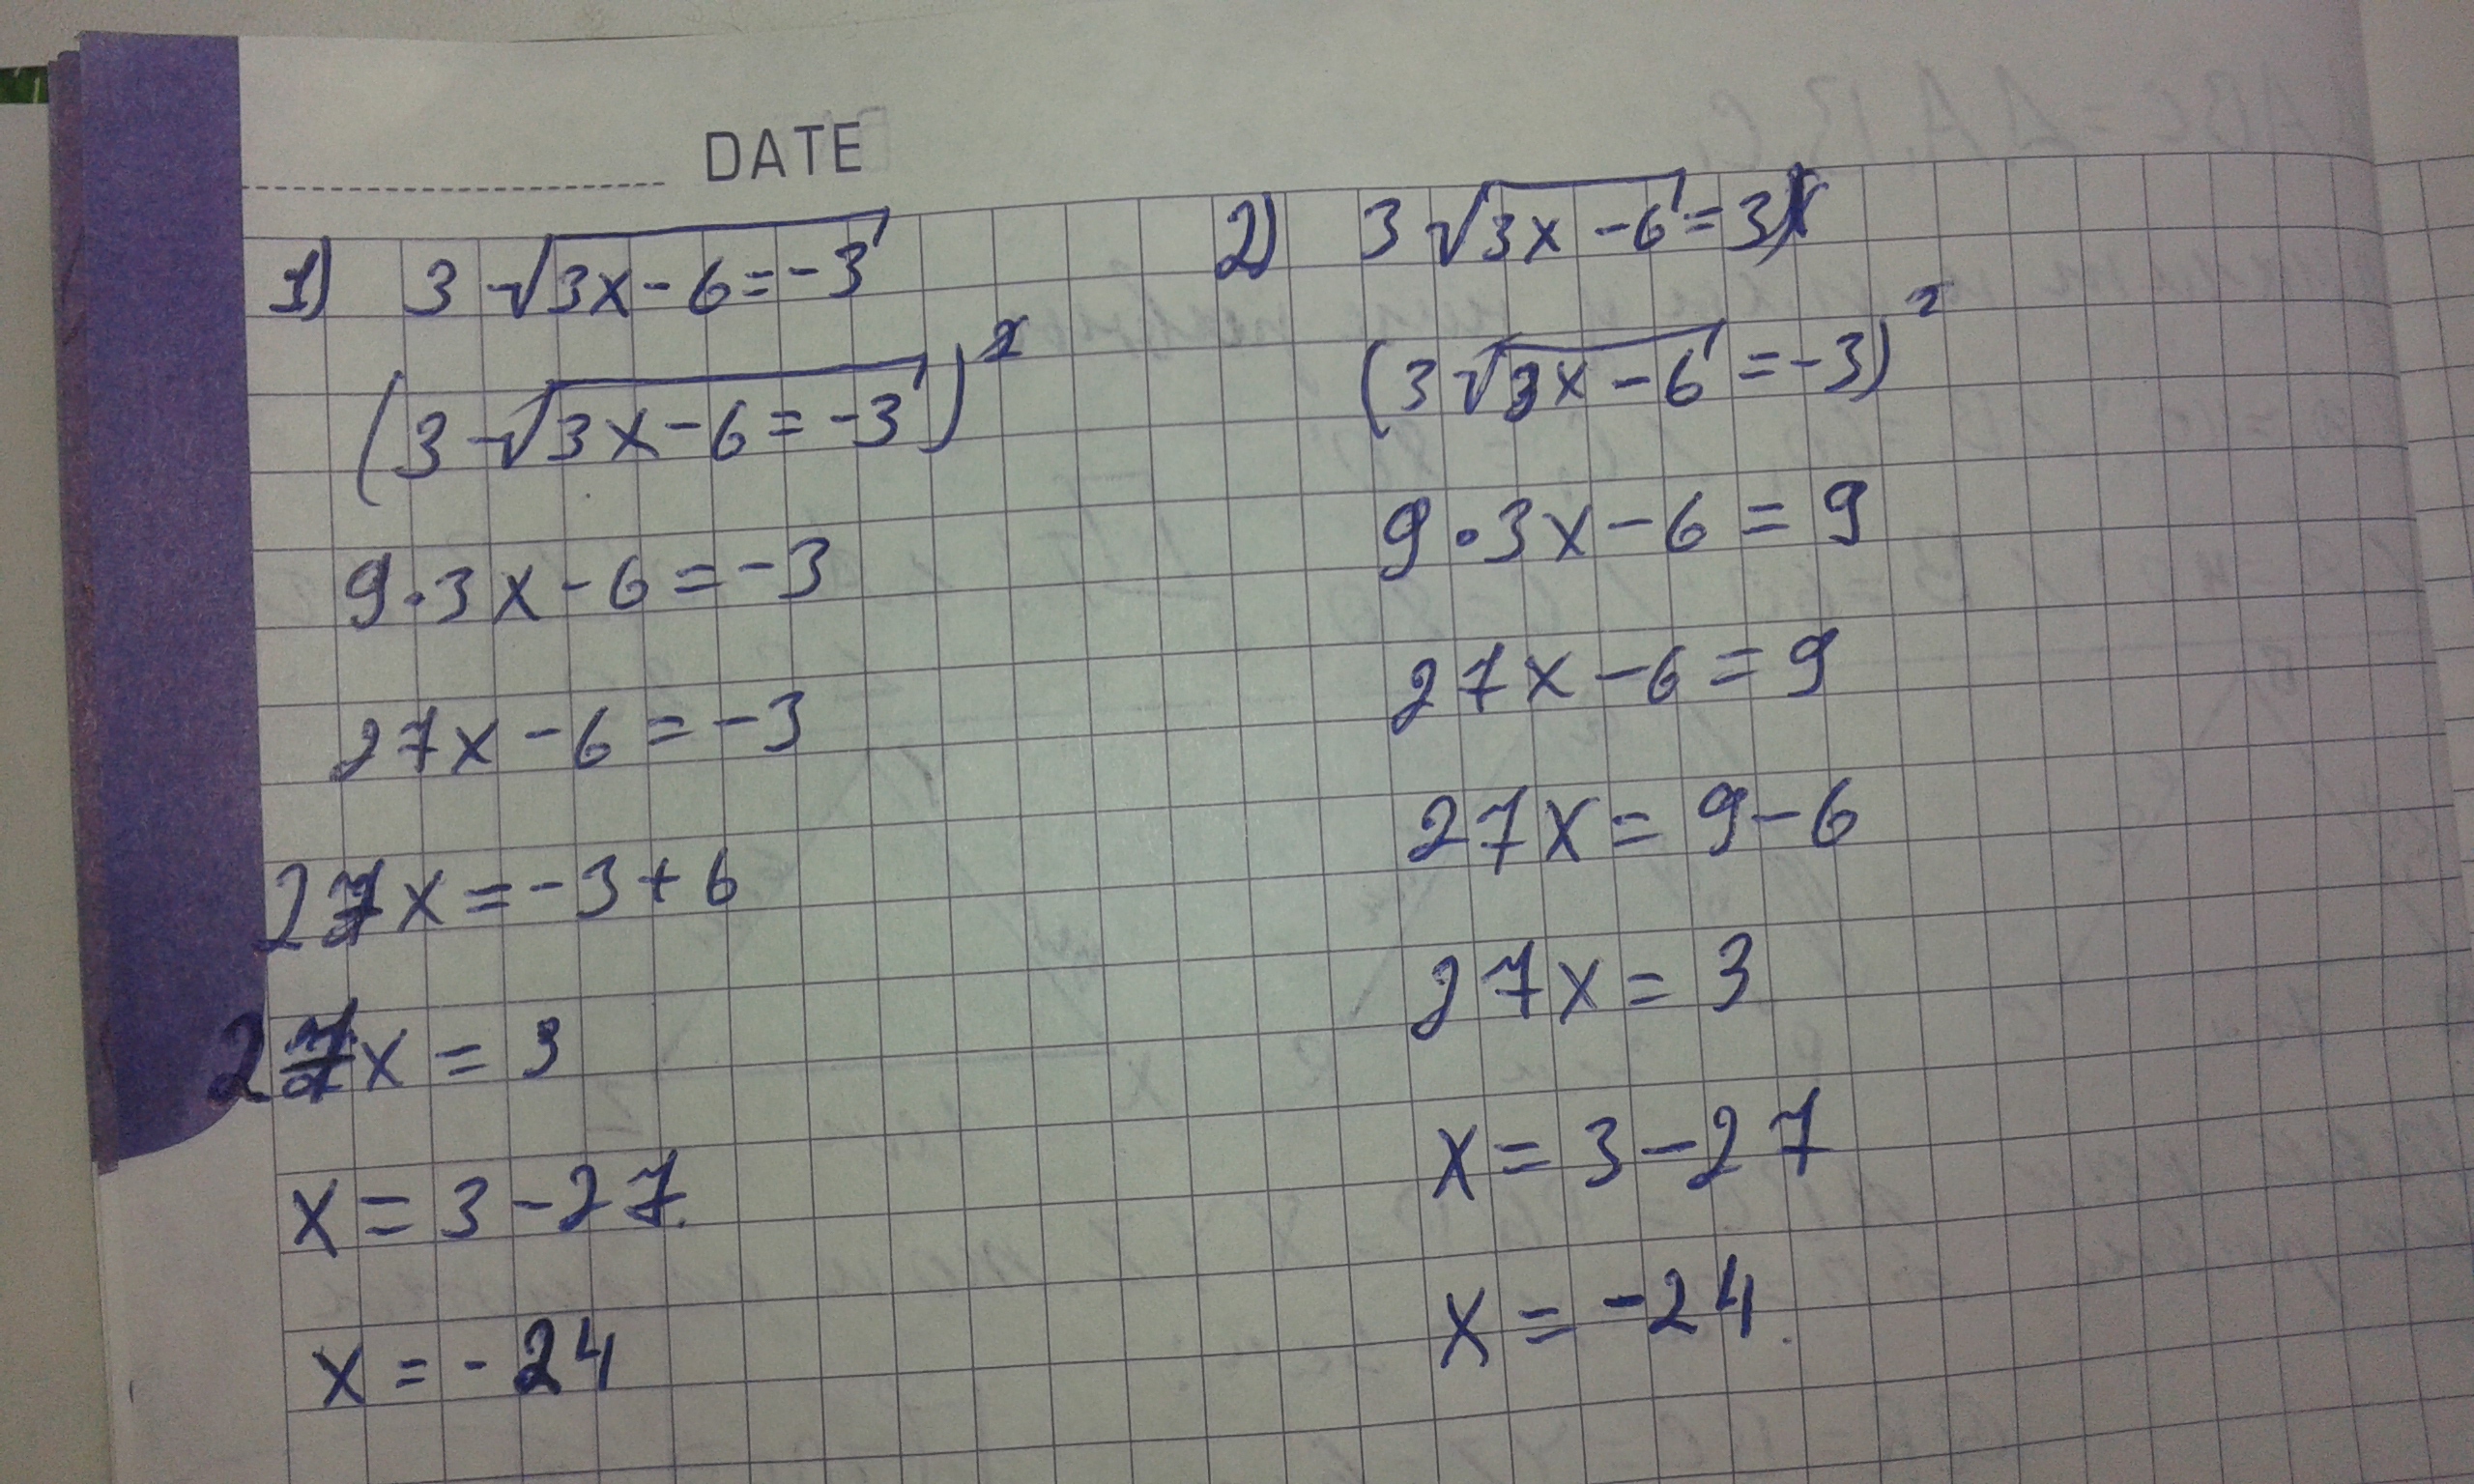 DATE
1) 3√(3x-6=-3)
(3√(3x-6=-3))²
9·3x-6=-3
27x-6=-3
27x=-3+6
27x=3
x=3-27
x=-24
2) 3√(3x-6)=3
(3√(3x-6)=-3)²
9·3x-6=9
27x-6=9
27x=9-6
27x=3
x=3-27
x=-24